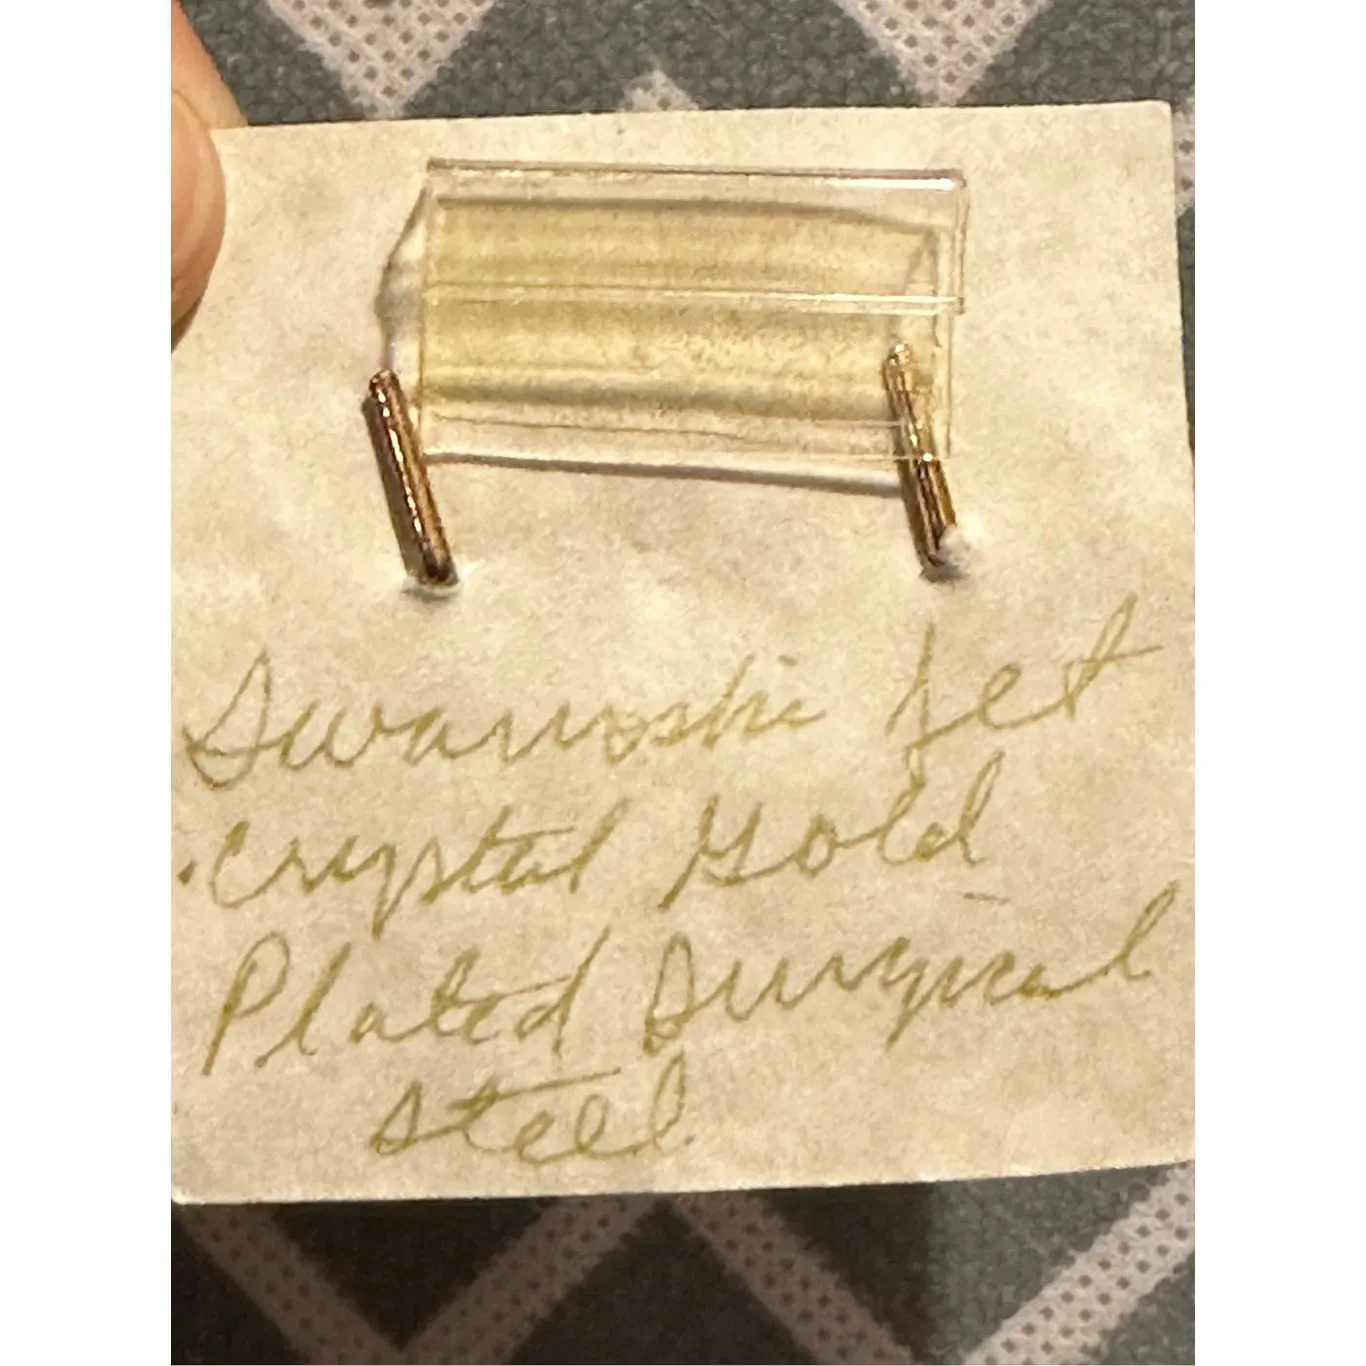 Swaroski Jet
Crystal Gold
Plated Surgical
steel